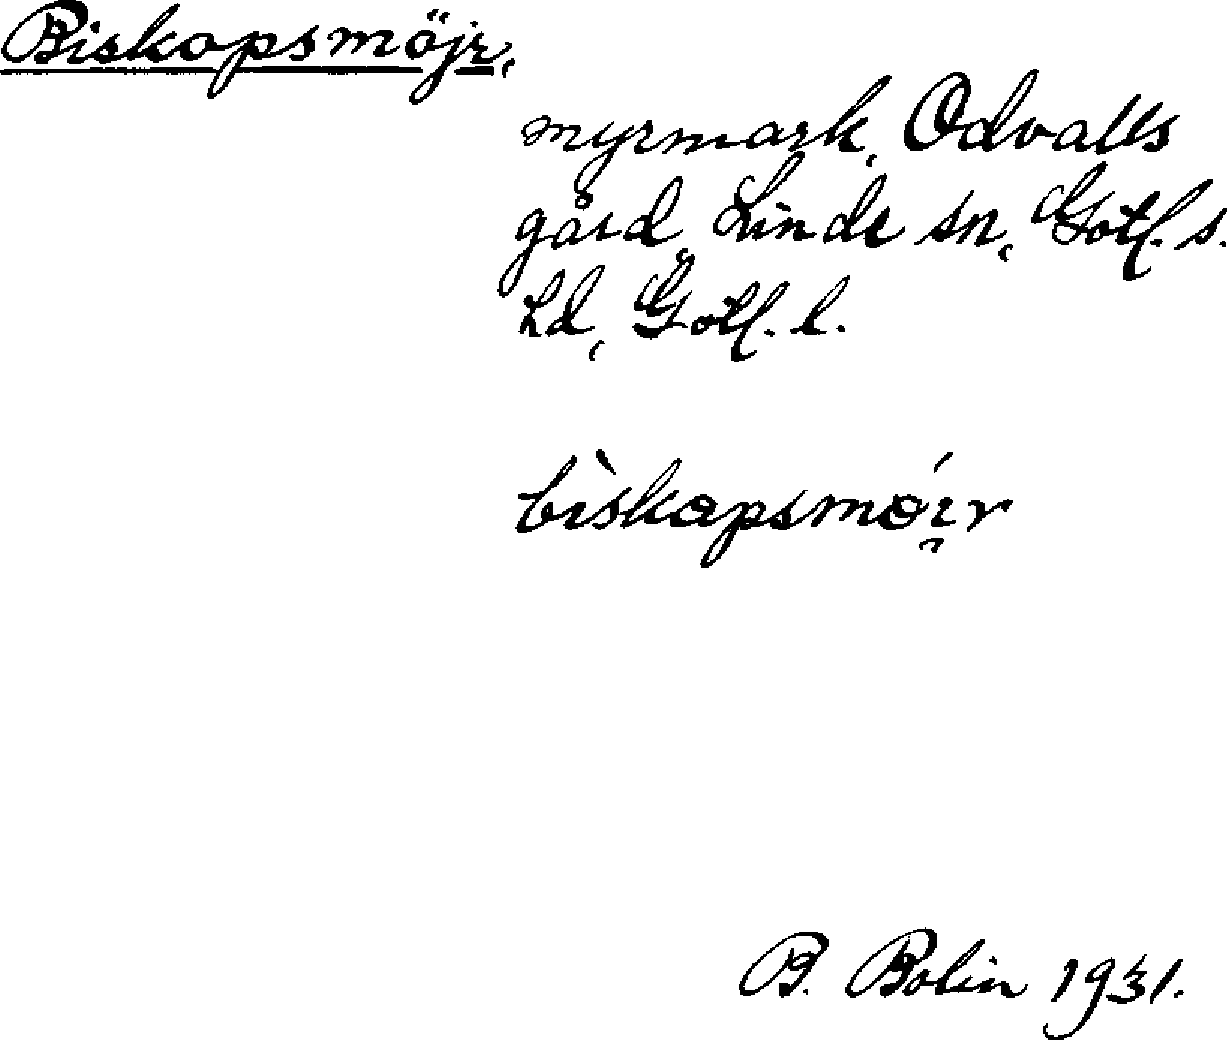 Biskopsmöjr,
myrmark, Odvalls
gård, Linde sn, Gotl. s.
hd, Gotl. l.
bìskapsmói̯r
B. Bolin 1931.